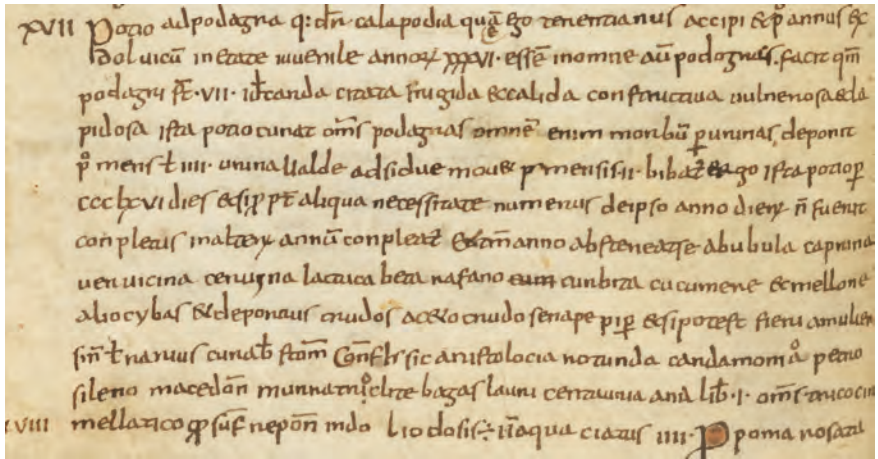 XVII Potio ad podagra q: dr̄ calapodia quā ego terentianus accipi & p̄ annus &
dolui cū in etate iuuenile annorꝝ XXXVI· essē in omne aū podogras. facit qm̄
podagri st̄· VII· id calida citata frugida & calida constructiua uulnerosa & la
pidosa ista potio curat om̄s podagras omnē enim morbū ꝑ urinas deponit
p̄ mens t̄ IIII· urina ualde adsidue mou& p̄ mensis II· bibat̄ ergo ista potio ꝑ
CCCLXVI dies & si ꝑ pt̄ aliqua necessitate numerus de ipso anno dierꝝ n̄ fuerit
conpletus in alterꝝ annū conpleat̄ anno absteneat se a bubula caprina
ueruicina ceruina lactuca beta rafano cum curbita cucumere & mellone
alio cybas & de porrius crudos ac&o crudo senape pip̄ & si potest fieri a mulier
sin̄ t̄ rarius curab̄ stom̄ Conf̄ sic aristolocia rotunda cardamomo petro
sileno macedon̄ bagas lauri centauria ana lib̄· I· om̄s
XVIII mellatico sūf repon̄ in dolio dosis ÷ I in aqua ciatus IIII· P poma rosata